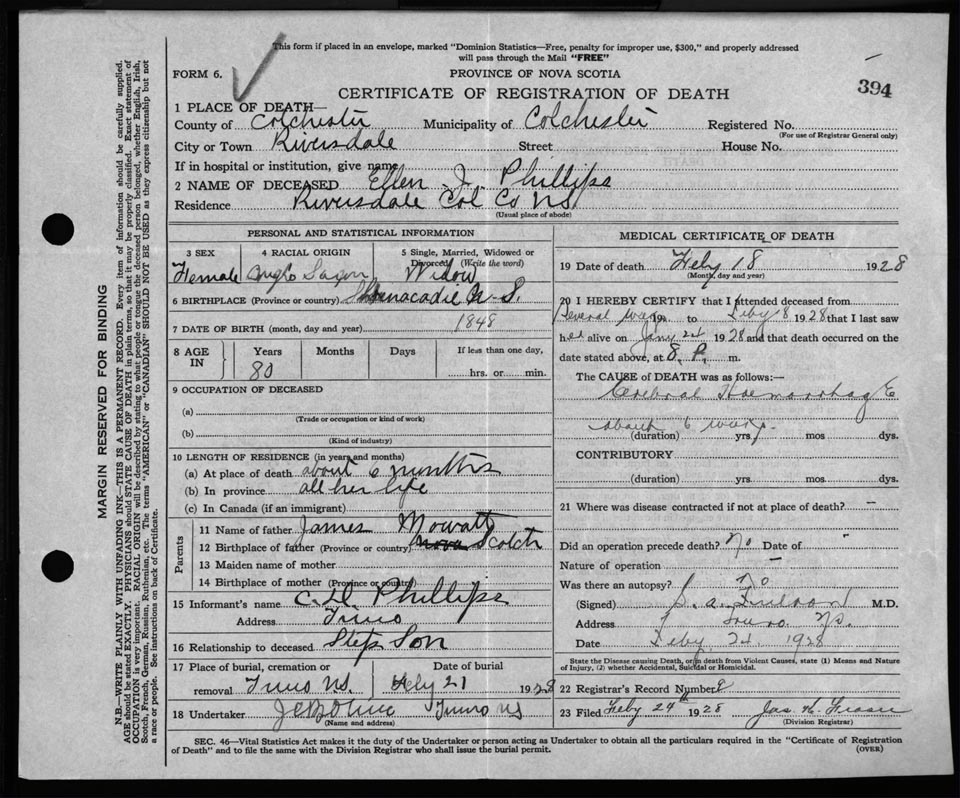 This form if placed in an envelope, marked "Dominion Statistics—Free, penalty for improper use, $300," and properly addressed
will pass through the Mail "FREE"
FORM 6.
PROVINCE OF NOVA SCOTIA
394
CERTIFICATE OF REGISTRATION OF DEATH
1 PLACE OF DEATH—
County of Colchester Municipality of Colchester Registered No.
(For use of Registrar General only)
City or Town Riversdale Street House No.
If in hospital or institution, give name
2 NAME OF DECEASED Ellen J. Phillips
Residence Riversdale Col Co NS
(Usual place of abode)
PERSONAL AND STATISTICAL INFORMATION
3 SEX 4 RACIAL ORIGIN 5 Single, Married, Widowed or
Divorced (Write the word)
Female Anglo Saxon Widow
6 BIRTHPLACE (Province or country) Shubenacadie N.S.
7 DATE OF BIRTH (month, day and year) 1848
8 AGE IN Years Months Days If less than one day,
80 hrs. or min.
9 OCCUPATION OF DECEASED
(a)
(Trade or occupation or kind of work)
(b)
(Kind of industry)
10 LENGTH OF RESIDENCE (in years and months)
(a) At place of death about 6 months
(b) In province all her life
(c) In Canada (if an immigrant)
Parents
11 Name of father James Mowatt
12 Birthplace of father (Province or country) Nova Scotch
13 Maiden name of mother
14 Birthplace of mother (Province or country)
15 Informant's name C. D. Phillips
Address Truro
16 Relationship to deceased Step Son
17 Place of burial, cremation or Date of burial
removal Truro NS. Feby 21 1928
18 Undertaker Truro NS
(Name and address)
MEDICAL CERTIFICATE OF DEATH
19 Date of death Feby 18 1928
(Month, day and year)
20 I HEREBY CERTIFY that I attended deceased from
Several 19 to Feby 8 1928 that I last saw
her alive on Jany 24 1928 and that death occurred on the
date stated above, at 8. P. m.
The CAUSE of DEATH was as follows:—
Cerebral Haemorrhage
about 6
(duration) yrs. mos dys.
CONTRIBUTORY
(duration) yrs. mos dys.
21 Where was disease contracted if not at place of death? –
Did an operation precede death? No Date of "
Nature of operation
Was there an autopsy? no
(Signed) M.D.
Address Truro. NS.
Date Feby 24. 1928
State the Disease causing Death, or in death from Violent Causes, state (1) Means and Nature
of Injury, (2) whether Accidental, Suicidal or Homicidal.
22 Registrar's Record Number
23 Filed Feby 24th 1928 Jas.
(Division Registrar)
SEC. 46—Vital Statistics Act makes it the duty of the Undertaker or person acting as Undertaker to obtain all the particulars required in the "Certificate of Registration
of Death" and to file the same with the Division Registrar who shall issue the burial permit. (OVER)
MARGIN RESERVED FOR BINDING
N.B.—WRITE PLAINLY WITH UNFADING INK—THIS IS A PERMANENT RECORD. Every item of information should be carefully supplied.
AGE should be stated EXACTLY. PHYSICIANS should STATE CAUSE OF DEATH in plain terms, so that it may be properly classified. Exact statement of
OCCUPATION is very important. RACIAL ORIGIN will be described by stating to what people or tongue the deceased person belonged, whether English, Irish,
Scotch, French, German, Russian, Ruthenian, etc. The terms "AMERICAN" or "CANADIAN" SHOULD NOT BE USED as they express citizenship but not
a race or people. See instructions on back of Certificate.